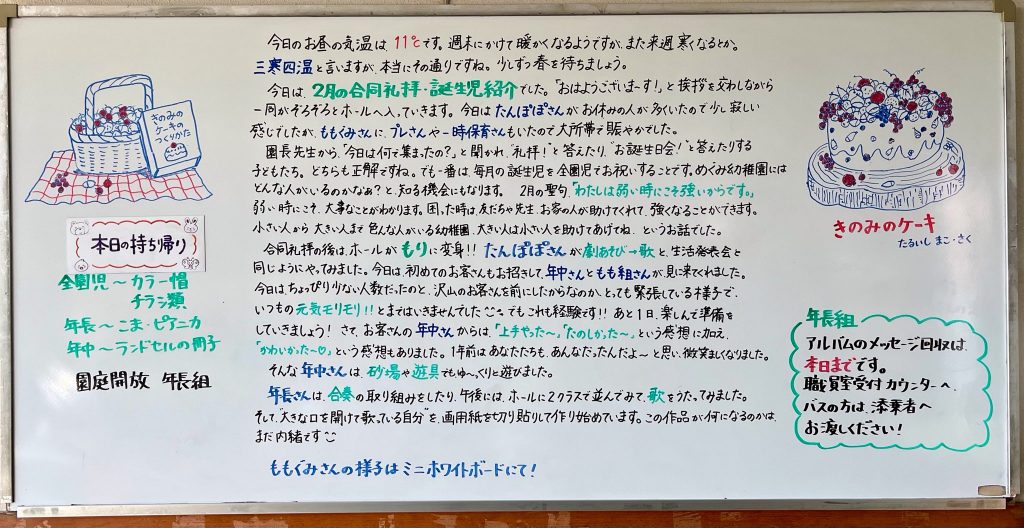 今日のお昼の気温は 11℃です。週末にかけて暖かくなるようですが、また来週 寒くなるとか。
三寒四温と言いますが、本当にその通りですね。少しずつ春を待ちましょう。
今日は、2月の合同礼拝・誕生児紹介でした。「おはようございまーす!」と挨拶を交わしながら
一同がぞろぞろとホールへ入っていきます。今日はたんぽぽさんがお休みの人が多くいたので少し寂しい
感じでしたが、ももぐみさんに、プレさんや一時保育さんもいたので大所帯で賑やかでした。
園長先生から、"今日は何で集まったの?"と聞かれ、"礼拝!"と答えたり、"お誕生日会!"と答えたりする
子どもたち。どちらも正解ですね。でも一番は、毎月の誕生児を全園児でお祝いすることです。めぐみ幼稚園には
どんな人がいるのかなぁ?と、知る機会にもなります。 2月の聖句、「わたしは弱い時にこそ強いからです。」
弱い時にこそ、大事なことがわかります。困った時は、友だちや先生、お家の人が助けてくれて、強くなることができます。
小さい人から 大きい人まで 色んな人がいる幼稚園、大きい人は小さい人を助けてあげてね、というお話でした。
合同礼拝の後は、ホールが もりに変身!! たんぽぽさんが 劇あそび→歌と、生活発表会と
同じようにやってみました。今日は、初めてのお客さんもお招きして、年中さんともも組さんが、見に来てくれました。
今日はちょっぴり少ない人数だったのと、沢山のお客さんを前にしたからなのか、とっても緊張している様子で、
いつもの 元気モリモリ!! とまではいきませんでした でもこれも経験です!! あと1日、楽しんで準備を
していきましょう! さて、お客さんの 年中さん からは、「上手だった〜」「たのしかった〜」という感想に加え、
「かわいかった〜♡」という感想もありました。1年前はあなたたちも、あんなだったんだよ〜と思い、微笑ましくなりました。
そんな 年中さんは、砂場や遊具でもゆ〜っくりと遊びました。
年長さんは、合奏の取り組みをしたり、午後には、ホールに2クラスで並んでみて、歌をうたってみました。
そして"大きな口を開けて歌っている自分"を、画用紙を切り貼りして作り始めています。この作品が何になるのかは、
まだ内緒です
ももぐみさんの様子はミニホワイトボードにて!
きのみの
ケーキの
つくりかた
本日の持ち帰り
全園児〜カラー帽
チラシ類
年長〜こま・ピアニカ
年中〜ランドセルの冊子
園庭開放 年長組
きのみのケーキ
たるいし まこ・さく
年長組
アルバムのメッセージ回収は、
本日までです。
職員室受付カウンターへ、
バスの方は、添乗者へ
お渡しください!